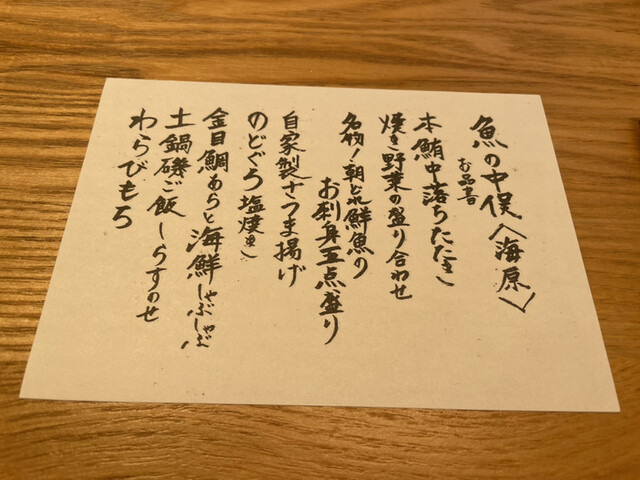 魚の中俣〈海原〉
お品書
本鮪中落ちたたき
焼き野菜の盛り合わせ
名物!朝どれ鮮魚の
お刺身五点盛り
自家製さつま揚げ
のどぐろ塩焼き
金目鯛あらと海鮮しゃぶしゃぶ
土鍋磯ご飯しらすのせ
わらびもち